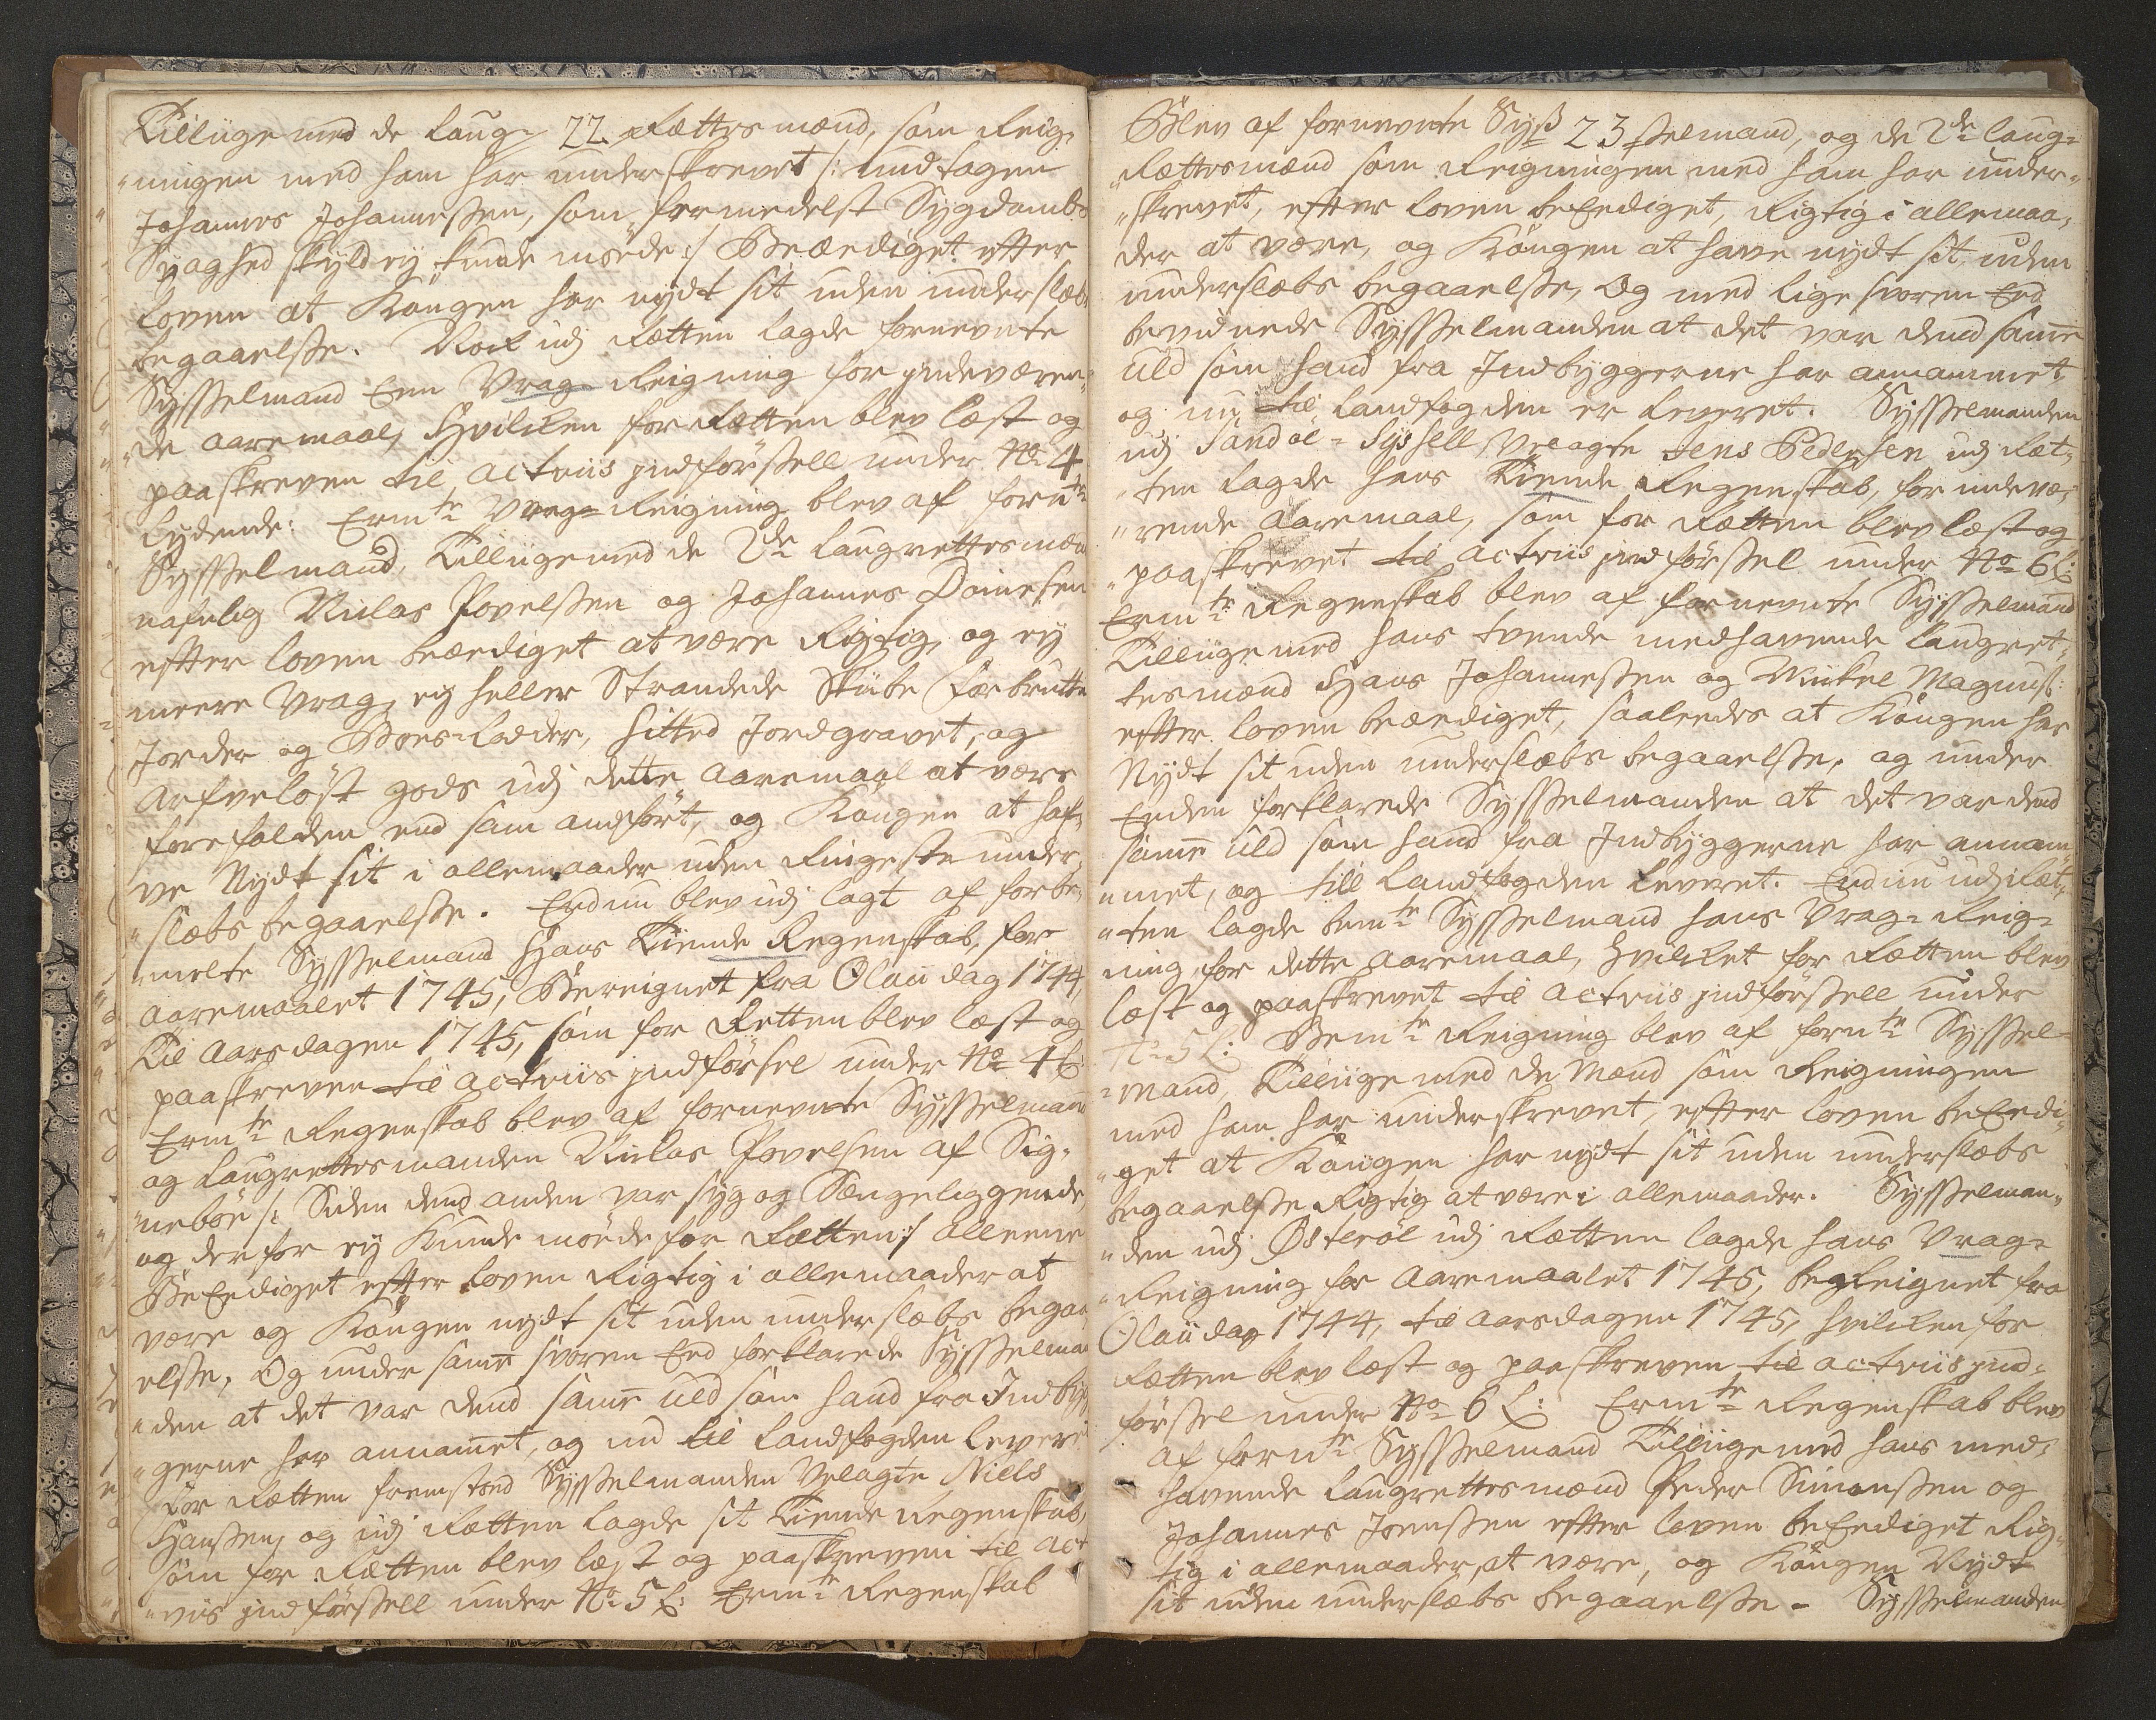 Tilliige med de Laug- 22 Rættesmænd, som Reig-
ningen med ham har underskrevet /: undtagen
Johannes Johannessen, som formedelst Sygdombs
Svaghed skyld ey kunde møede :/ Beærdiget efter
Loven at Kongen har nydt sit uden underslæbs
begaaelsse. Nock udj Rætten lagde fornevnte
Sysselmand Een Vrag Reigning for jndeværen-
de aaremaal, Hvilcken for Rætten blev læst og
paaskreven til actviis jndførssell under No 4
Lydende: Ermte Vrag-Reigning blev af fornte
Sysselmand, Tilliige med de 2de Laugrettesmænd
nafnlig Niclas Povelssen og Johannes Danielsen
effter loven beærdiget at være Rigtig, og ey
meere Vrag, ey heller Strandede Skibe Forbrutte
Jorder og Boes-Lodder, hitted Jordgravet, og
Arfveløst gods udj dette aaremaal at være
forefalden end som andført, og Kongen at haf-
ve Nydt sit i allemaader uden Ringeste under-
slæbs begaaelsse. End nu blev udj lagt af forbe-
melte Sysselmand Hans Tiende Regenskab, for
aaremaalet 1745, Bereignet fra Olau dag 1744,
Til Aarsdagen 1745, som for Retten blev læst og
paaskreven til actviis jndførsel under No 4 L:
Ermte Regenskab blev af fornevnte Sysselmand
og Laugrettesmanden Niclas Povelsen af Sig-
nebøe /: Siden dend anden var syg og Sængeliggende,
og derfor ey Kunde møede for Rætten :/ alleene
BeEediget effter loven Rigtig i allemaader at
være og Kongen nydt sit uden underslæbs begaa
elsse, Og under samme svoren Eed forklarede Sysselman
den at det var dend samme uld som hand fra Indbyg
gerne har annammet, og nu til Landfogden leveret
For Rætten fremstod Sysselmanden Velagte Niels
Hanssen, og udj Rætten lagde sit Tiende Regenskab,
som for Rætten blev læst og paaskreven til act
viis jndførssell under No 5 L: Ermte Regenskab
Blev af fornevnte Syss 23 selmand, og de 2de Laug-
Rættesmænd som Reigningen med ham har under-
skrevet, effter loven beEediget, Rigtig i allemaa-
der at være, og Kongen at have nydt sit uden
underslæbs begaaelsse, Og med lige svoren Eed
bevidnede Sysselmanden at det var dend samme
uld som hand fra Jndbyggerne har annammet
og nu til Landfogden er leveret. Sysselmanden
udj Sandøe-Syssell Velagte Jens Pedersen udj Ræt-
ten lagde hans Tiende Regenskab, for jndevæ-
rende aaremaal, som for Rætten blev læst og
paaskrevet til actviis jndførssel under No 6 L:
Ermte Regenskab blev af fornevnte Sysselmand
Tilliige med hans tvende medhavende laugret-
tesmænd Hans Johannessen og Mickel Magnuss:
effter loven beærdiget, saaleedes at Kongen har
Nydt sit uden underslæbs begaaelsse, og under
Eeden forklarede Sysselmanden at det var dend
samme uld som hand fra Jndbyggerne har annam-
met, og till Landfogden leveret. End nu udj Ræt-
ten lagde bemte Sysselmand hans Vrag-Reig-
ning, for dette aaremaal, hvilcket for Rætten blev
læst og paaskrevet til actviis jndførssell under
No 5 L: Bemte Reigning blev af fornte Syssel-
mand, Tilliige med de Mænd som Reigningen
med ham har underskrevet, effter loven beEedi-
get at Kongen har nydt sit uden underslæbs
begaaelsse Rigtig at være i allemaader. Sysselman-
den udj Østerøe udj Rætten lagde hans Vrag-
Reigning for Aaremaalet 1745, begReignet fra
Olau dag 1744, til aarsdagen 1745, hvilcken for
Rætten blev læst og paaskreven til actviis jnd-
førssel under No 6 L: Ermte Regenskab blev
af fornte Sysselmand Tilliige med hans med-
havende Laugrettesmænd Peder Simonssen og
Johannes Joenssen effter loven beEediget Rig-
tig i allemaader, at være, og Kongen Nydt
sit uden underslæbs begaaelsse. Sysselmanden